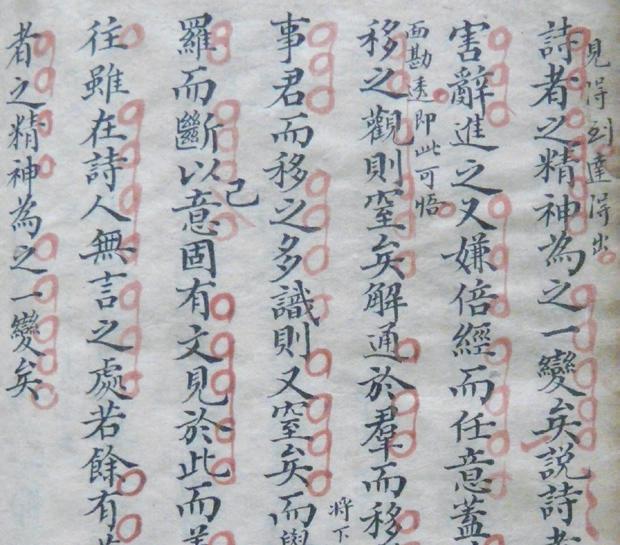 見得到達得出
詩者之精神為之一變矣說詩
害辭進之又嫌倍經而任意蓋
面勘透即此可悟
移之觀則窒矣解通於羣而移
將下
事君而移之多識則又窒矣而
羅而斷以己意固有文見於此而
往雖在詩人無言之處若餘有
者之精神為之一變矣